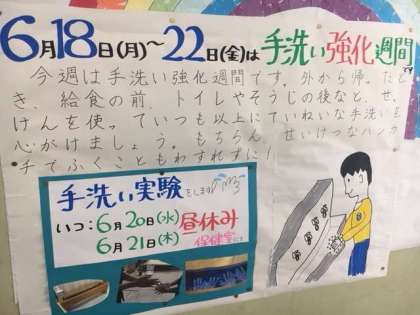 6月18日(月)～22日(金)は手洗い強化週間です
今週は手洗い強化週間です。外から帰ったと
き、給食の前、トイレやそうじの後など、せっ
けんを使っていつも以上にていねいな手洗いを
心がけましょう。もちろん、せいけつなハンカ
チでふくこともわすれずに！
手洗い実験をします
いつ：6月20日(水)昼休み
6月21日(木)
保健室にて